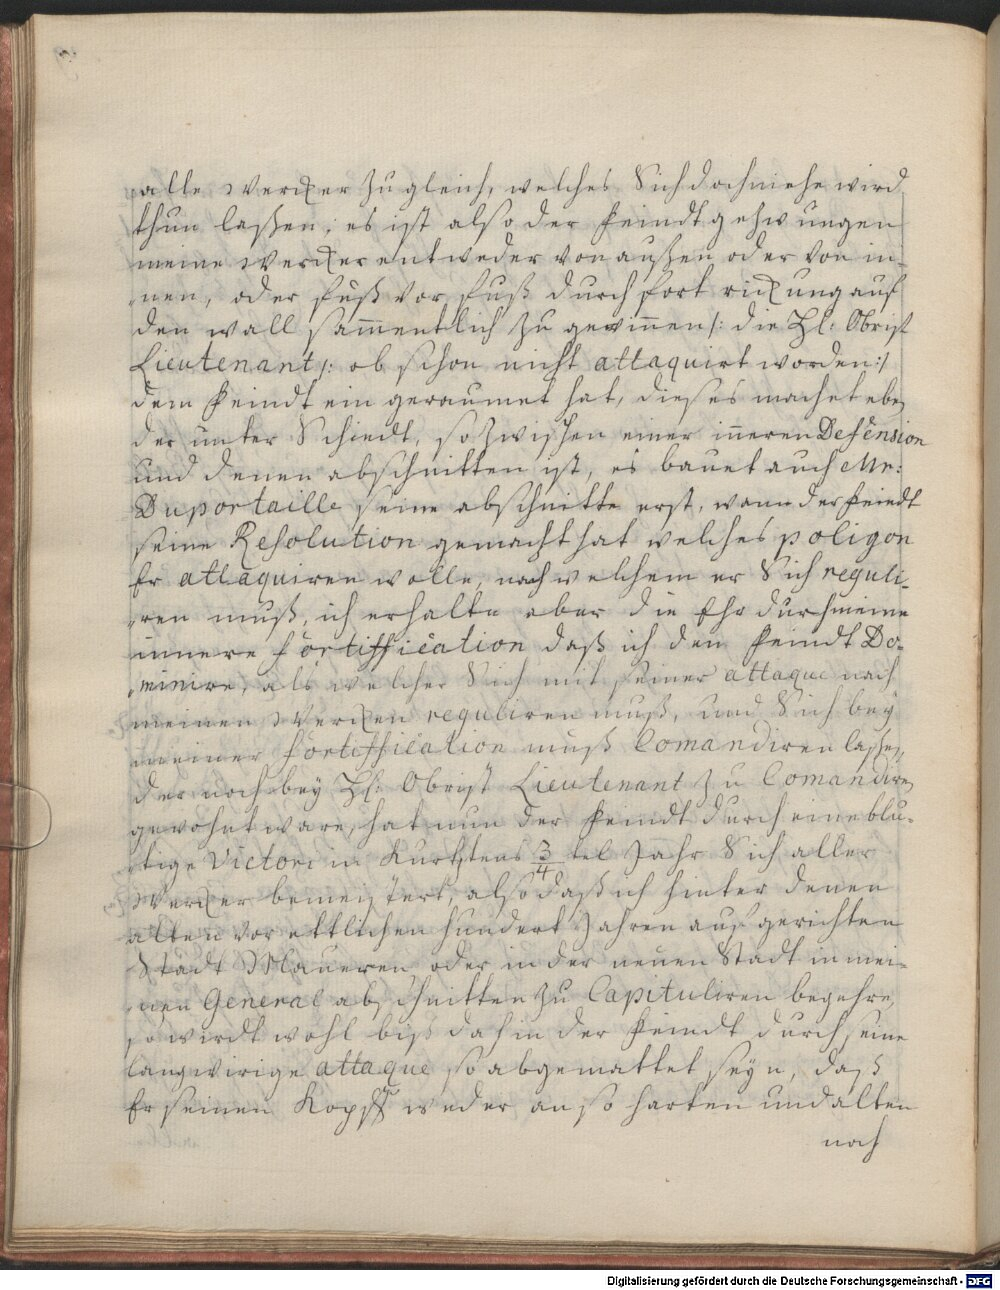 alle Wercker zu gleich, welches Sich doch niehe wird
thun laßen; es ist also der Feindt gezwungen
meine Wercker entweder von außen oder von in-
nen, oder fuß vor fuß durch fort rückung auf
den wall sam̄entlich zu gewin̄en /: die H: Obrist
Lieutenant /: ob schon nicht attaquirt worden :/
dem Feindt ein geraumet hat, dieses machet eben
der unter Schiedt, so zwischen einer in̄eren Defension
und denen abschnitten ist, es bauet auch Mr:
Duportaille seine abschnitte erst, wann der Feindt
seine Resolution gemacht hat welches poligon
Er attaquiren wolle, nach welchem er Sich reguli-
ren muß, ich erhalte aber die Ehr durch meine
innere fortiffication daß ich den Feindt Do-
minire, als welcher Sich mit seiner attaque nach
meinen Wercken reguliren muß, und Sich bey
meiner fortiffication muß Comandiren laßen,
der noch bey H: Obrist Lieutenant zu Comandiren
gewohnt ware, hat nun der Feindt durch eine blu-
tige Victori in Kurtztens 3/4 tel Jahr Sich aller
Wercker bemeistert, also daß ich hinter denen
alten vor ettlichen hundert Jahren auf gerichten
Stadt Maueren oder in der neuen Stadt in mei-
nen General abschnitten zu Capituliren begehre,
so wirdt wohl biß dahin der Feindt durch seine
langwirige attaque so abgemattet seyn, daß
Er seinen Kopff weder an so harten und alten
noch
Digitalisierung gefördert durch die Deutsche Forschungsgemeinschaft - DFG